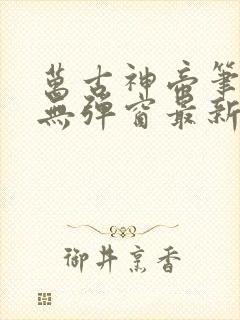 萬古神帝筆
無彈窗最新
御井烹香